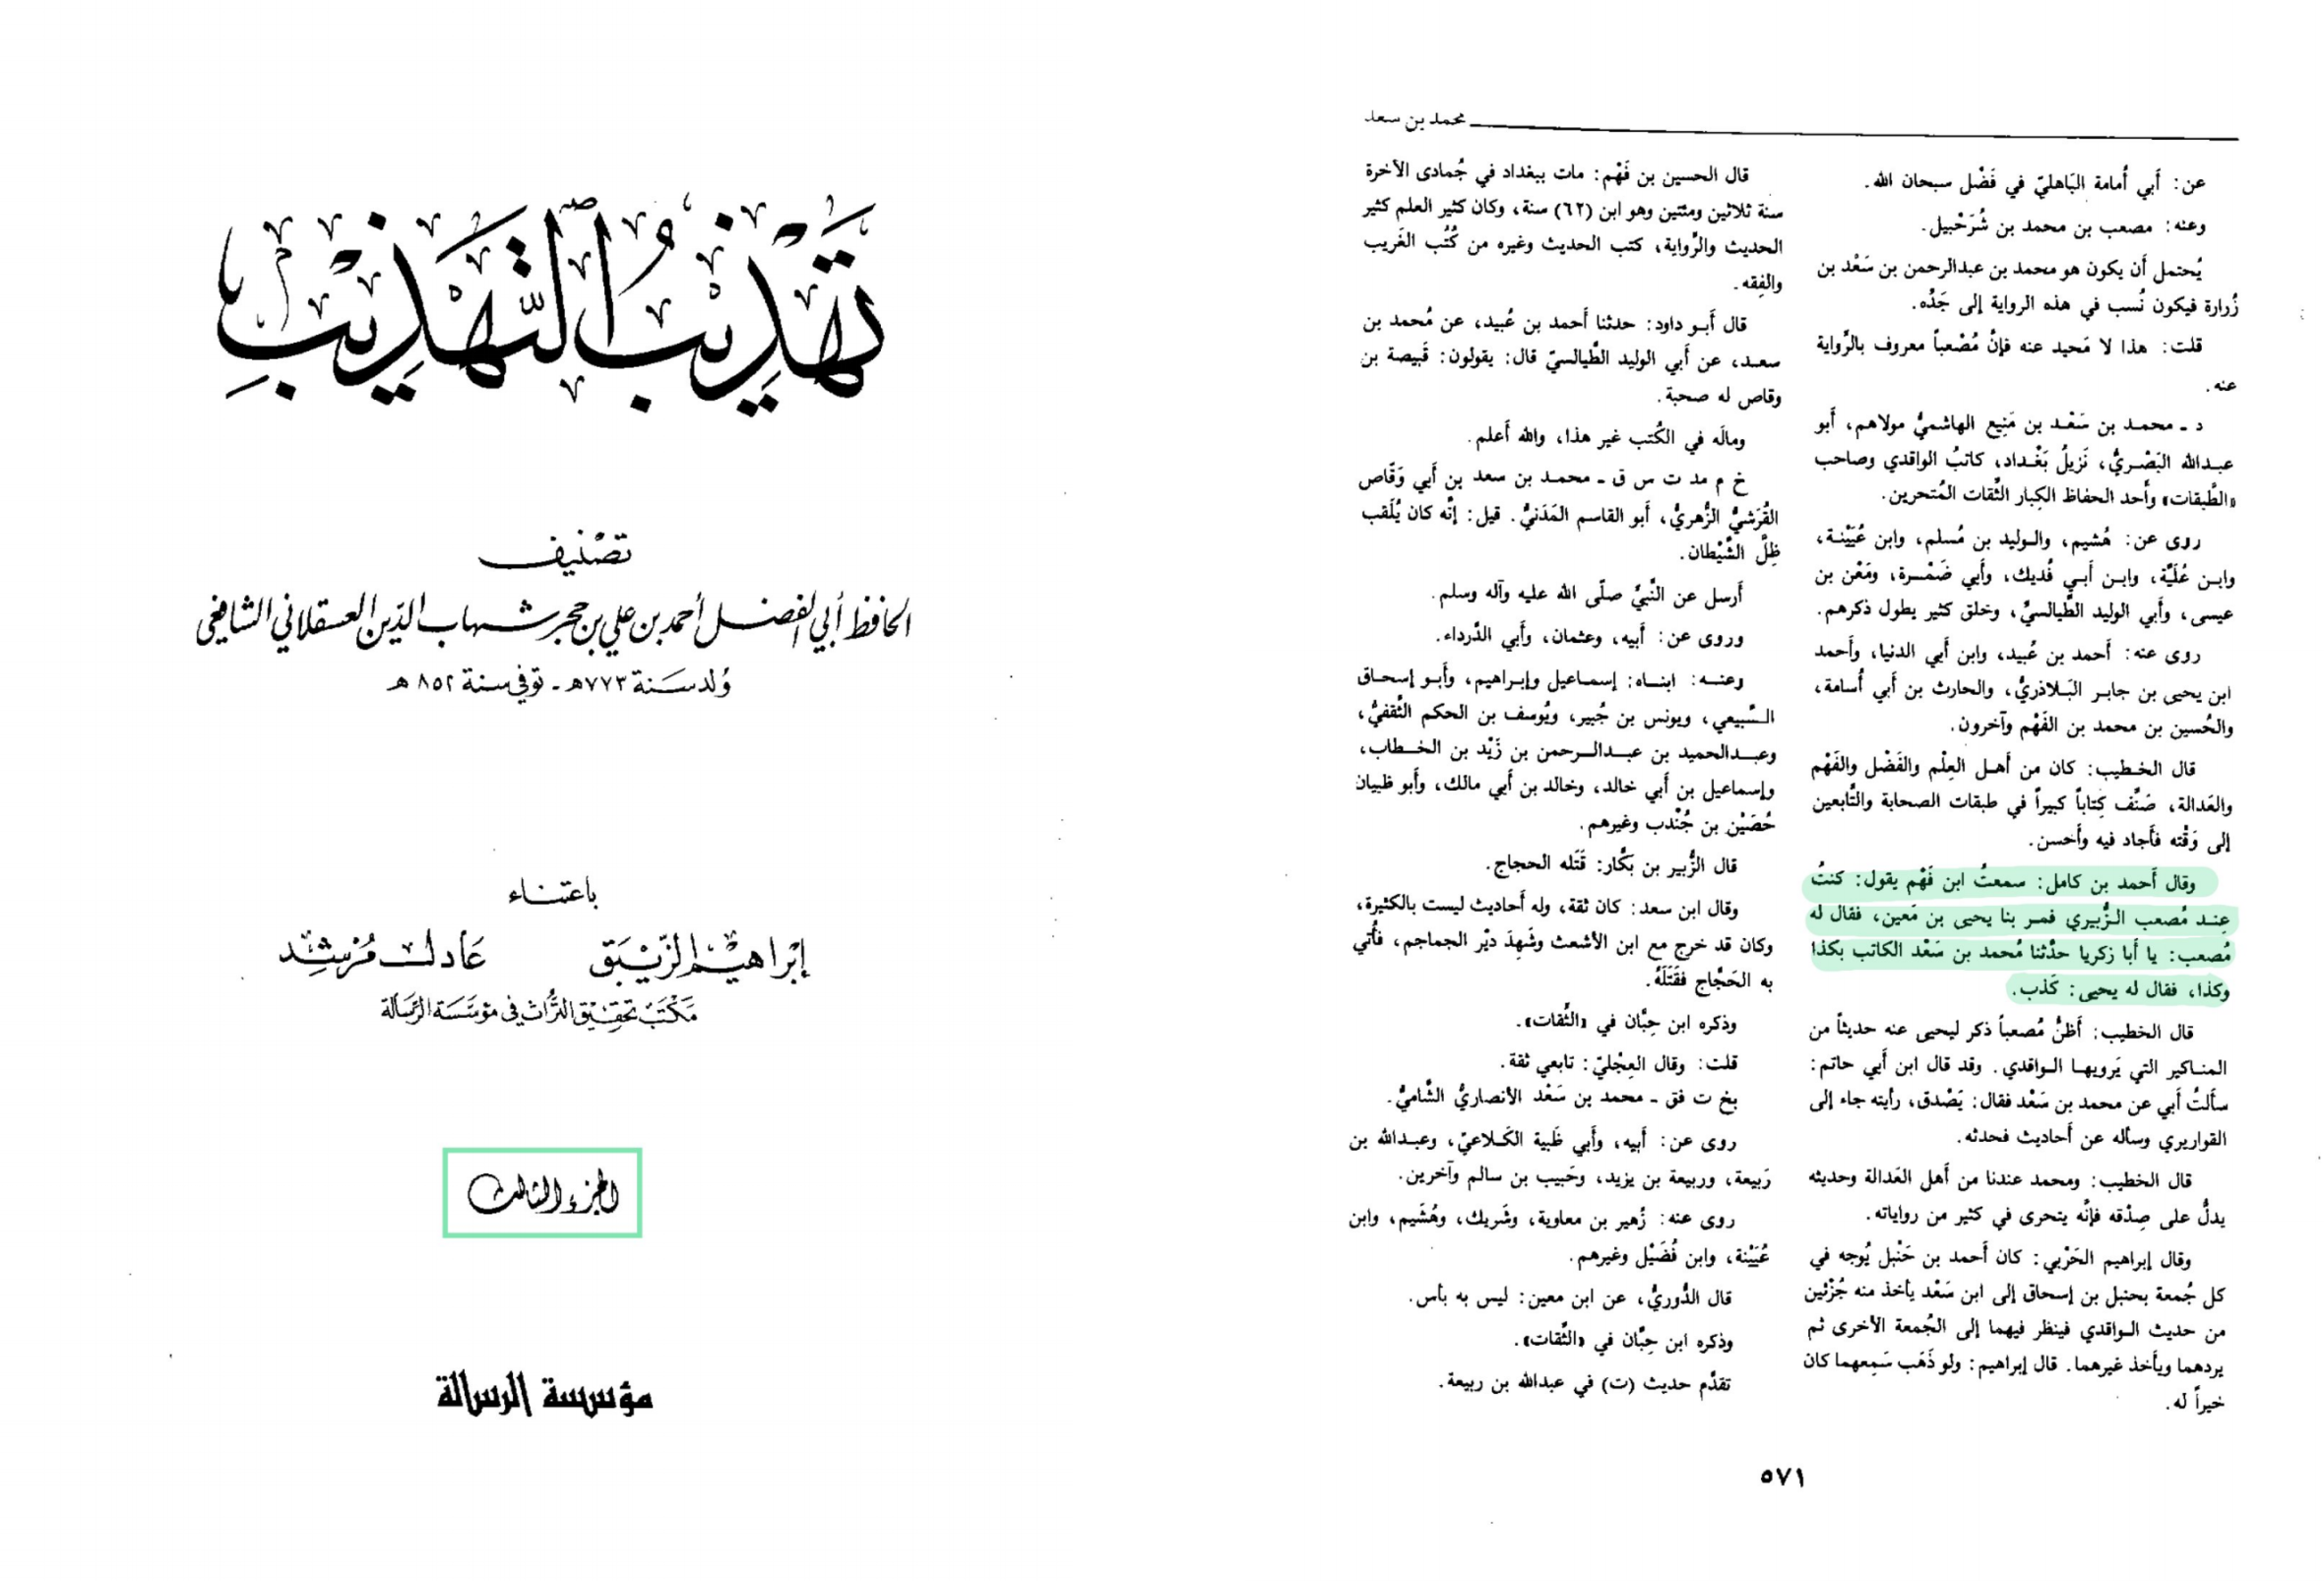 تهذيب التهذيب
تصنيف
الحافظ أبي الفضل أحمد بن علي بن حجر شهاب الدين العسقلاني الشافعي
ولد سنة ٧٧٣ هـ - توفي سنة ٨٥٢ هـ
باعتناء
إبراهيم الزيبق عادل مرشد
مكتب تحقيق التراث في مؤسسة الرسالة
الجزء الثالث
مؤسسة الرسالة
محمد بن سعد
عن: أَبي أُمامة البَاهليّ في فَضْل سبحان الله.
وعنه: مصعب بن محمد بن شُرَحْبيل.
يُحتمل أَن يكون هو محمد بن عبدالرحمن بن سَعْد بن
زُرارة فيكون نُسب في هذه الرواية إلى جَدُه.
قلت: هذا لا مَحيد عنه فإنَّ مُصْعباً معروف بالرِّواية
عنه.
د ـ محمد بن سَعْد بن مَنِيع الهاشميُّ مولاهم، أَبو
عبدالله البَصْريُّ، نَزيلُ بَغْداد، كاتبُ الواقدي وصاحب
«الطَّبقات» وأَحد الحفاظ الكِبار الثِّقات المُتحرين.
روى عن: هُشيم، والوليد بن مُسلم، وابن عُيَيْنة،
وابن عُلَيَّة، وابن أَبي فُديك، وأَبي ضَمْرة، ومَعْن بن
عيسى، وأَبي الوليد الطَّيالسيِّ، وخلق كثير يطول ذكرهم.
روى عنه: أَحمد بن عُبيد، وابن أَبي الدنيا، وأَحمد
ابن يحيى بن جابر البَلاذريُّ، والحارث بن أَبي أُسامة،
والحُسين بن محمد بن الفَهْم وآخرون.
قال الخطيب: كان من أَهل العِلْم والفَضْل والفَهْم
والعَدالة، صَنَّف كِتاباً كبيراً في طبقات الصحابة والتَّابعين
إلى وَقْته فأَجاد فيه وأَحسن.
وقال أَحمد بن كامل: سمعتُ ابن فَهْم يقول: كنتُ
عِند مُصعب الزُّبيري فمر بنا يحيى بن مَعين، فقال له
مُصعب: يا أَبا زكريا حدَّثنا مُحمد بن سَعْد الكاتب بكذا
وكذا، فقال له يحيى: كَذب.
قال الخطيب: أَظنُّ مُصعباً ذكر ليحيى عنه حديثاً من
المناكير التي يَرويها الواقدي. وقد قال ابن أَبي حاتم:
سأَلتُ أَبي عن محمد بن سَعْد فقال: يَصْدق، رأيته جاء إلى
القواريري وسأله عن أَحاديث فحدثه.
قال الخطيب: ومحمد عندنا من أَهل العَدالة وحديثه
يدلُّ على صِدْقه فإنَّه يتحرى في كثير من رواياته.
وقال إبراهيم الحَرْبي: كان أَحمد بن حَنْبل يُوجه في
كل جُمعة بحنبل بن إسحاق إلى ابن سَعْد يأخذ منه جُزْئين
من حديث الواقدي فينظر فيهما إلى الجُمعة الأخرى ثم
يردهما ويأخذ غيرهما. قال إبراهيم: ولو ذَهَب سَمِعهما كان
خيراً له.
قال الحسين بن فَهْم: مات ببغداد في جُمادى الآخرة
سنة ثلاثين ومئتين وهو ابن (٦٢) سنة، وكان كثير العلم كثير
الحديث والرِّواية، كتب الحديث وغيره من كُتُب الغَريب
والفِقه.
قال أَبو داود: حدثنا أَحمد بن عُبيد، عن مُحمد بن
سعد، عن أَبي الوليد الطَّيالسيّ قال: يقولون: قَبيصة بن
وقاص له صحبة.
ومالَه في الكُتب غير هذا، والله أَعلم.
خ م مد ت س ق ـ محمد بن سعد بن أَبي وَقَّاص
القُرَشيُّ الزُّهريُّ، أَبو القاسم المَدَنيُّ. قيل: إنَّه كان يُلَقب
ظِلَّ الشَّيْطان.
أَرسل عن النَّبيِّ صلّى الله عليه وآله وسلم.
وروى عن: أَبيه، وعثمان، وأَبي الدَّرداء.
وعنه: ابناه: إسماعيل وإبراهيم، وأَبو إسحاق
السَّبيعي، ويونس بن جُبير، ويُوسف بن الحكم الثَّقفيُّ،
وعبدالحميد بن عبدالرحمن بن زَيْد بن الخطاب،
وإسماعيل بن أَبي خالد، وخالد بن أَبي مالك، وأَبو ظبيان
حُصَيْن بن جُنْدب وغيرهم.
قال الزُّبير بن بَكَّار: قَتَله الحجاج.
وقال ابن سعد: كان ثقة، وله أَحاديث ليست بالكثيرة،
وكان قد خرج مع ابن الأشعث وشَهِدَ ديْر الجماجم، فأُتي
به الحَجَّاج فقَتَلَهُ.
وذكره ابن حِبَّان في «الثِّقات».
قلت: وقال العِجْليّ: تابعي ثقة.
بخ ت فق ـ محمد بن سَعْد الأنصاريُّ الشَّاميُّ.
روى عن: أَبيه، وأَبي ظَبية الكَلاعيّ، وعبدالله بن
رَبيعة، وربيعة بن يزيد، وحَبيب بن سالم وآخرين.
روى عنه: زُهير بن معاوية، وشَريك، وهُشَيم، وابن
عُيَيْنة، وابن فُضَيْل وغيرهم.
قال الدُّوريُّ، عن ابن معين: ليس به بأس.
وذكره ابن حِبَّان في «الثِّقات».
تقدَّم حديث (ت) في عبدالله بن ربيعة.
٥٧١